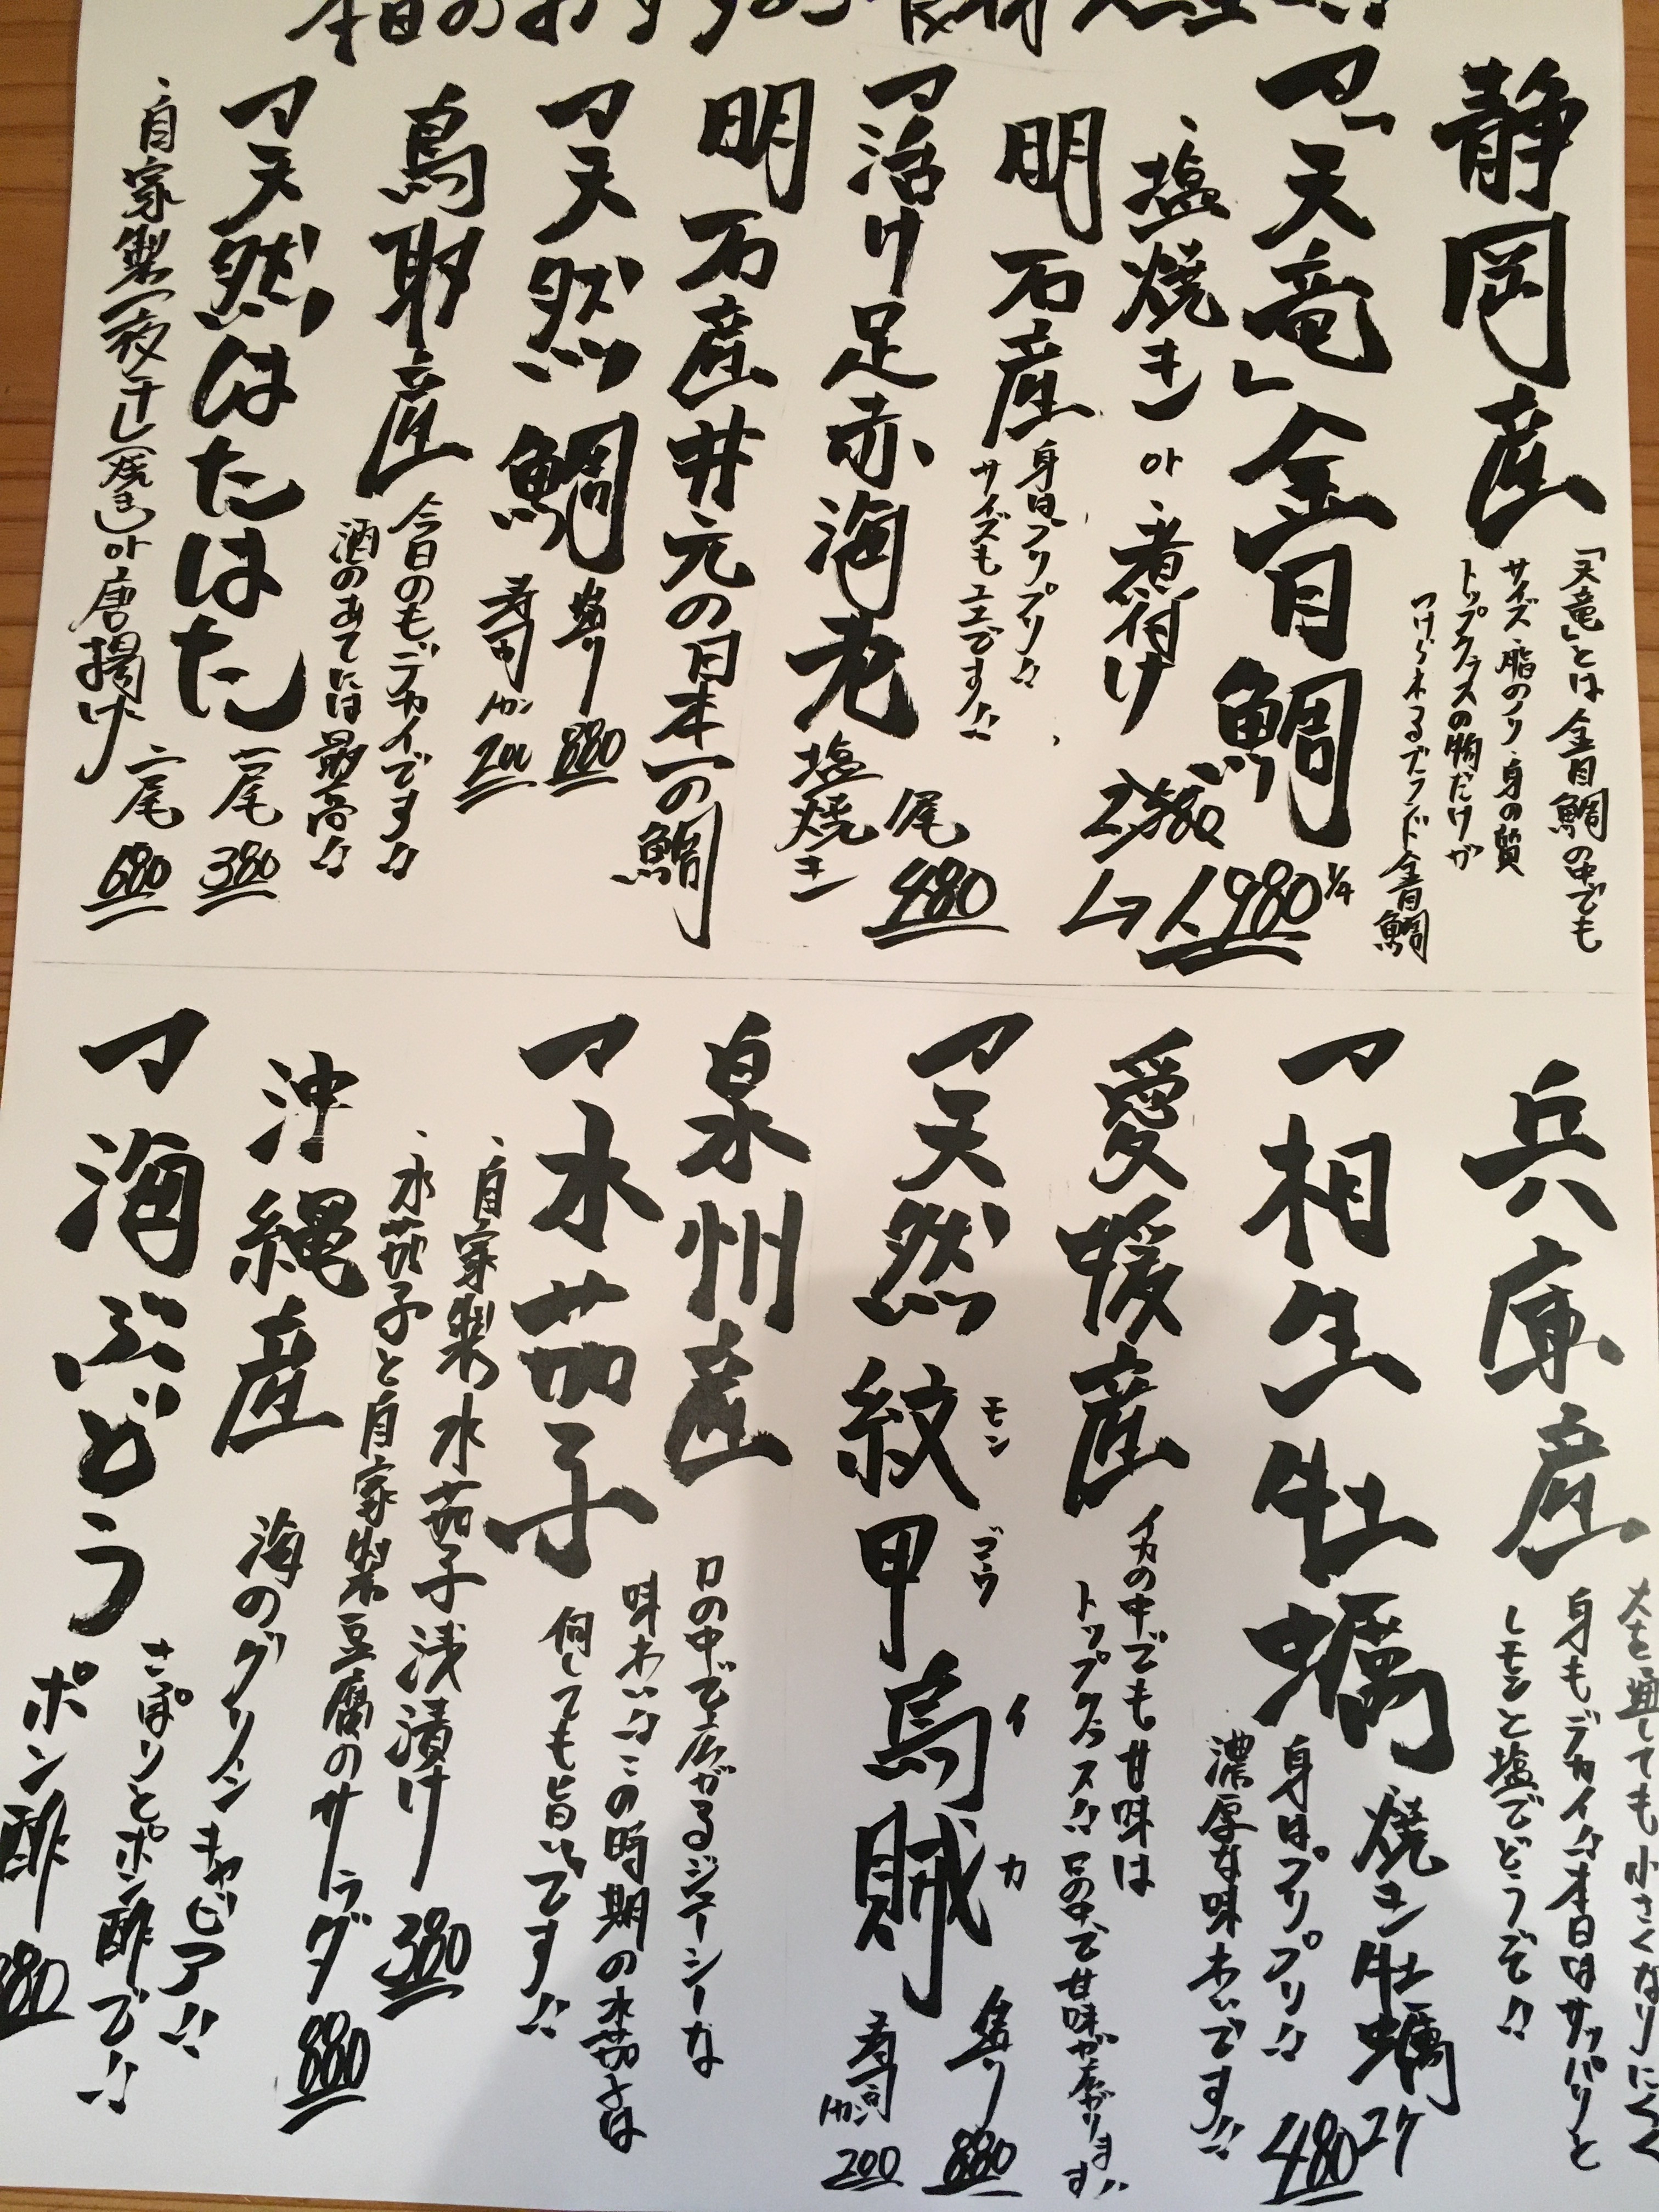 本日のおすすめ食材
静岡産
「天竜」とは金目鯛の中でも
サイズ・脂のノリ・身の質
トップクラスの物だけが
つけられるブランド金目鯛
「天竜」金目鯛
1/4
1,980
・塩焼き or ・煮付け
明石産
身はプリプリ!!
サイズもエエです!!
活け足赤海老
尾
480
塩焼き
明石産井元の日本一の鯛
天然鯛
造り
880
寿司
1カン
200
鳥取産
今日のもデカイです!!
酒のあてには最高!!
天然はたはた
一尾
380
二尾
680
・自家製一夜干し(焼き)or唐揚げ
兵庫産
火を通しても小さくなりにくく
身もデカイ!!本日はサッパリと
レモンと塩でどうぞ!!
相生牡蠣
焼き牡蠣
2ケ
480
身はプリプリ!!
濃厚な味わいです!!
愛媛産
イカの中でも甘味は
トップクラス!!口の中で甘味が広がります!!
天然紋甲烏賊
モンゴウイカ
造り
880
寿司
1カン
200
泉州産
口の中で広がるジューシーな
味わい!!この時期の水茄子は
何しても旨いです!!
水茄子
・自家製水茄子浅漬け
380
・水茄子と自家製豆腐のサラダ
880
沖縄産
海のグリーンキャビア!!
さっぱりとポン酢で!!
海ぶどう
ポン酢